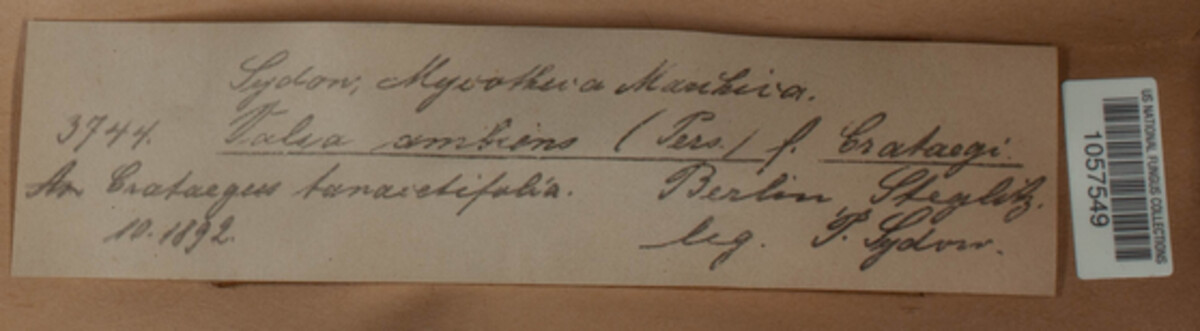 Sydow, Mycotheca Marchica.
3744. Valsa ambiens (Pers.) f. Crataegi.
An Crataegus tanacetifolia. Berlin, Steglitz.
10. 1892. leg. P. Sydow.
US NATIONAL FUNGUS COLLECTIONS
1057549